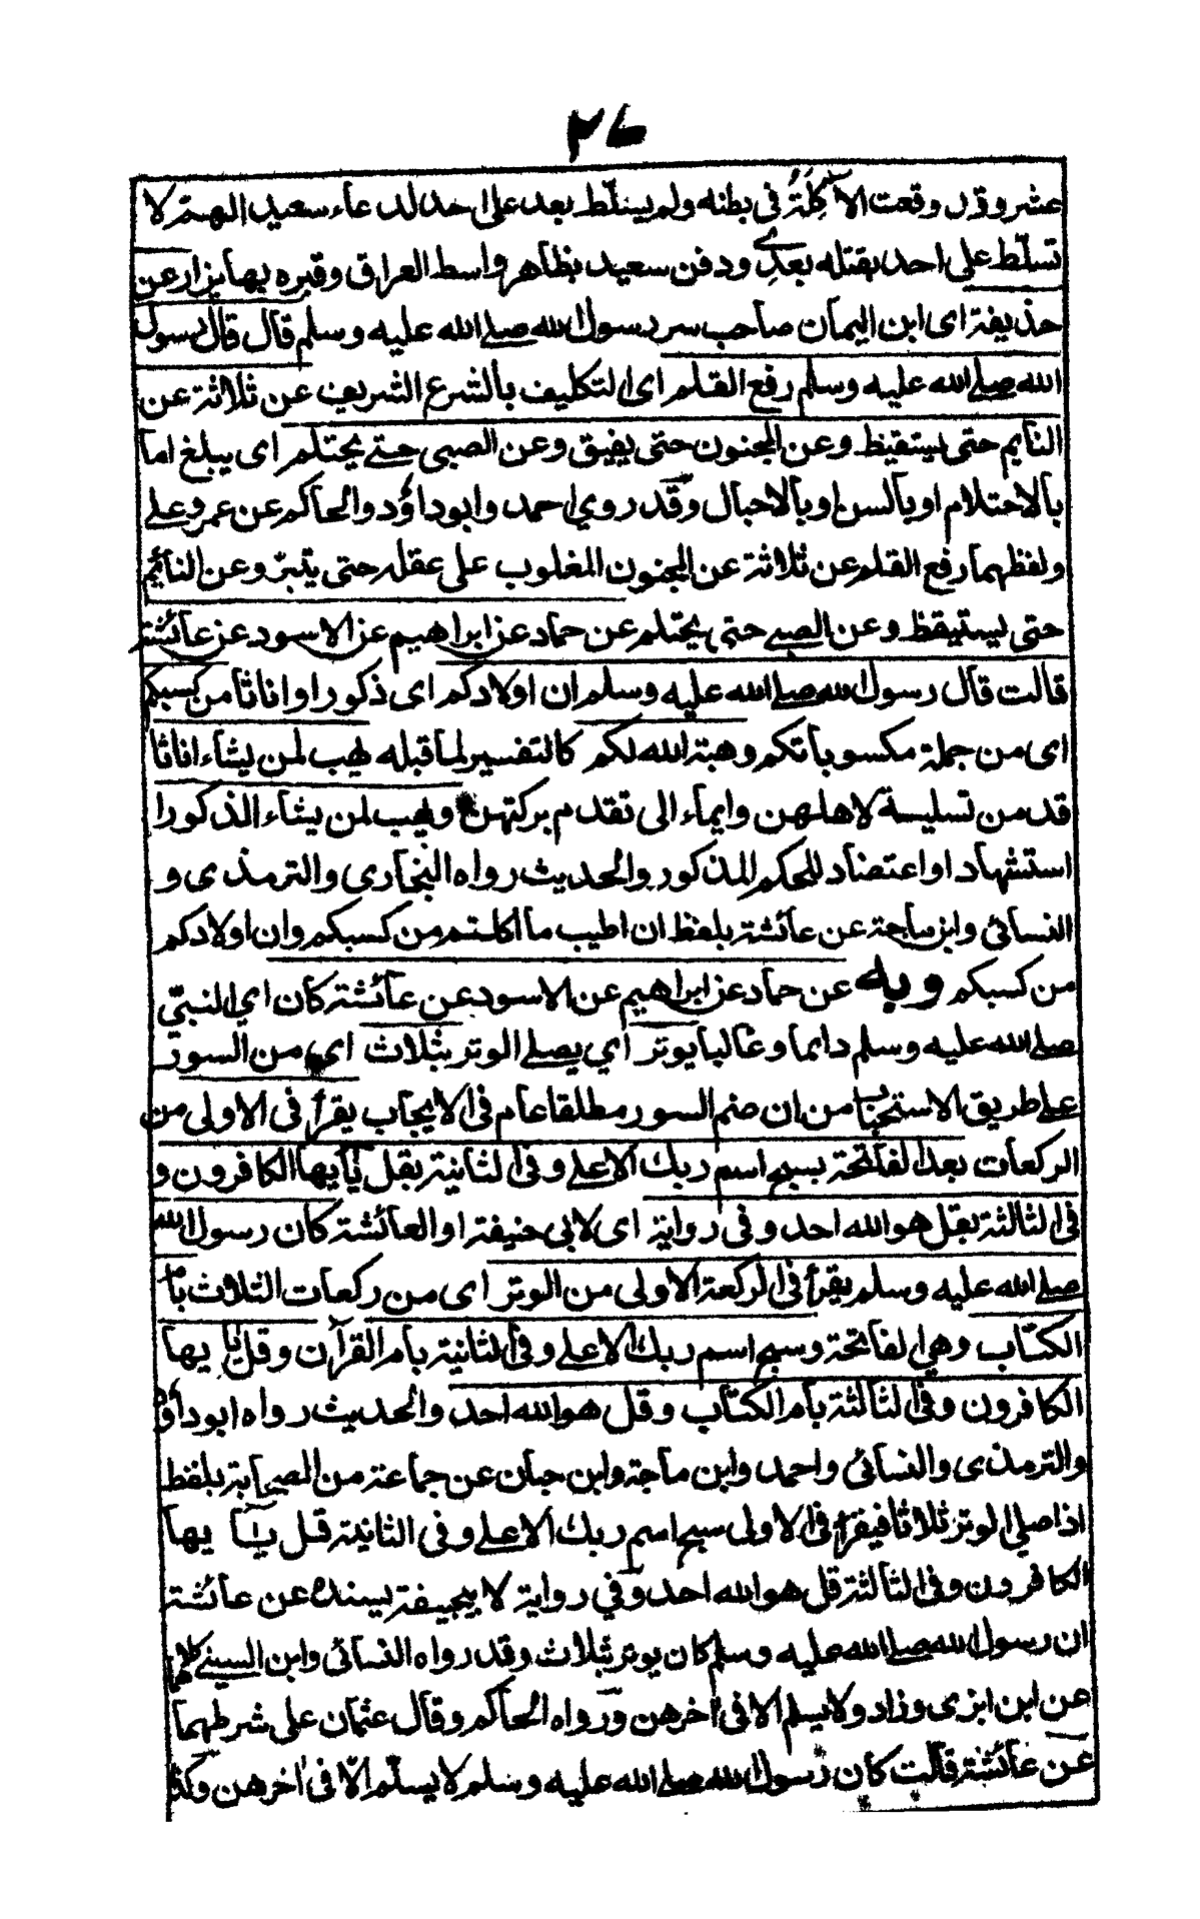 ٢٧
عشر وقد وقعت الاٰكِلَةُ فى بطنه ولم يسلّط بعد على احد لدعاء سعيد اللهم لا
تسلّط على احد يقتله بعدِى ودفن سعيد بظاهر واسط العراق وقبره بها يزار عن
حذيفة اى ابن اليمان صاحب سر رسول الله صلى الله عليه وسلم قال قال رسول
الله صلى الله عليه وسلم رفع القلم اى التكليف بالشرع الشريف عن ثلاثة عن
النايم حتى يستقيظ وعن المجنون حتى يفيق وعن الصبى حتى يحتلم اى يبلغ اما
بالاحتلام او بالسن او بالاحبال وقد روي احمد وابو داؤد والحاكم عن عمر وعلى
ولفظهما رفع القلم عن ثلاثة عن المجنون المغلوب على عقله حتى يتبرّ وعن النائم
حتى يستيقظ وعن الصبى حتى يحتلم عن حماد عن ابراهيم عن الاسود عن عائشة
قالت قال رسول الله صلى الله عليه وسلم ان اولادكم اى ذكورا واناثا من كسبكم
اى من جملة مكسوباتكم وهبة الله لكم كالتفسير لما قبله يهب لمن يشاء اناثا
قد من تسلية لاهلهن وايماء الى تقدم بركتهن ويهب لمن يشاء الذكورا
استشهاد او اعتضاد للحكم المذكور والحديث رواه البخارى والترمذى و
النسائى وابن ماجة عن عائشة بلفظ ان اطيب ما اكلتم من كسبكم وان اولادكم
من كسبكم وبه عن حماد عن ابراهيم عن الاسود عن عائشة كان اي النبيّ
صلى الله عليه وسلم دايما وغالبا يوتر أي يصلى الوتر بثلاث اى من السور
على طريق الاستحباب من ان ضم السور مطلقا عام فى الايجاب يقرأ فى الاولى من
الركعات بعد الفاتحة بسبح اسم ربك الاعلى وفى الثانية بقل يٰأيها الكافرون و
فى الثالثة بقل هو الله احد وفى رواية اى لابى حنيفة او العائشة كان رسول الله
صلى الله عليه وسلم يقرأ فى الركعة الاولى من الوتر اى من ركعات الثلاث بام
الكتاب وهي الفاتحة وسبح اسم ربك الاعلى وفى الثانية بام القرآن وقل يا يها
الكافرون وفى الثالثة بام الكتاب وقل هو الله احد والحديث رواه ابو داؤد
والترمذى والنسائى واحمد وابن ماجة وابن حبان عن جماعة من الصحابة بلفظ
اذا صلي الوتر ثلاثا فيقرأ فى الاولى سبح اسم ربك الاعلى وفى الثانية قل يٰٓا يها
الكافرون وفى الثالثة قل هو الله احد وفي رواية لابيجيفة بسنده عن عائشة
ان رسول الله صلى الله عليه وسلم كان يوتر بثلاث وقد رواه النسائى وابن السنى كلاهما
عن ابن ابزى وزاد ولا يسلم الا فى اخرهن ورواه الحاكم وقال عثمان على شرطهما
عن عائشة قالت كان رسول الله صلى الله عليه وسلم لا يسلّم الّا فى اخرهن وكذا